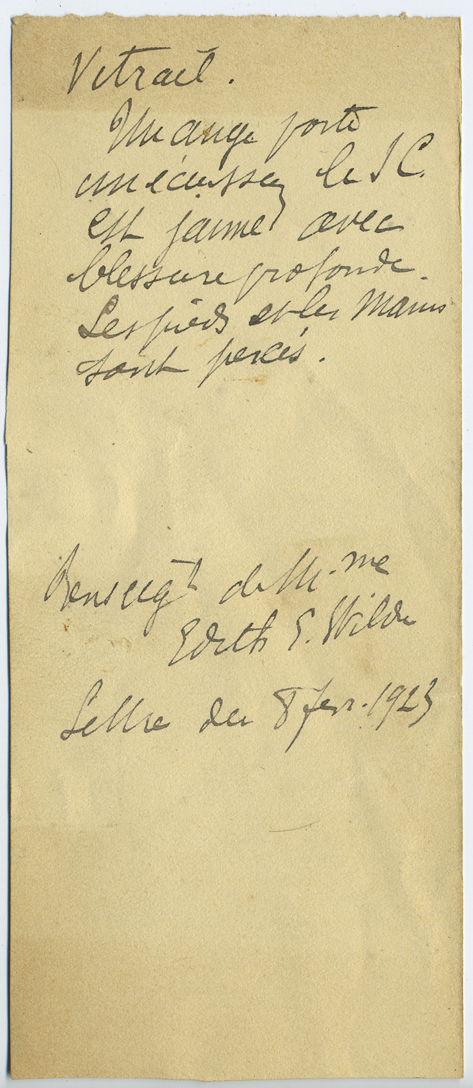 Vitrail.
Un ange porte
un écusson le S C.
est jaune avec
blessure profonde.
Les pieds et les mains
sont percés.
Renseigt de M.me
Edith E. Wilde
Lettre du 8 fevr. 1923